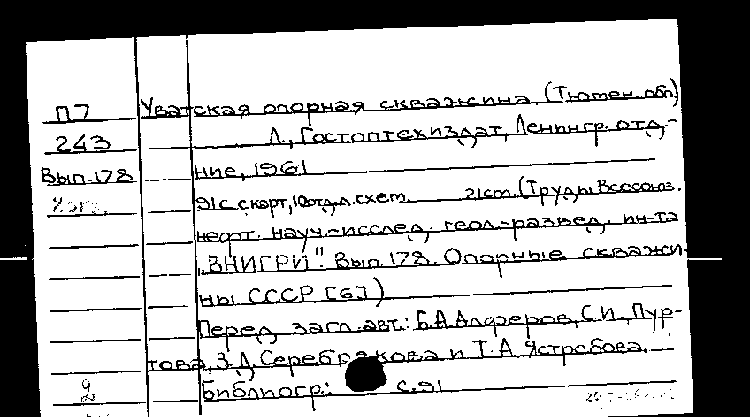 П7
243
Вып. 178
2 экз.
Уватская опорная скважина. (Тюмен. обл)
Л., Гостоптехиздат, Ленингр. отд-
ние, 1961
91 с. с карт., 10 отд. л. схем. 21 cm. (Труды Всесоюз.
нефт. науч.-исслед. геол.-развед. ин-та
„ВНИГРИ". Вып. 178. Опорные скважи-
ны СССР [6])
Перед загл. авт.: Б.А. Алферов, С.И. Пур-
това, З.Л. Серебрякова и Т.А. Ястребова.
Библиогр: с. 91
2